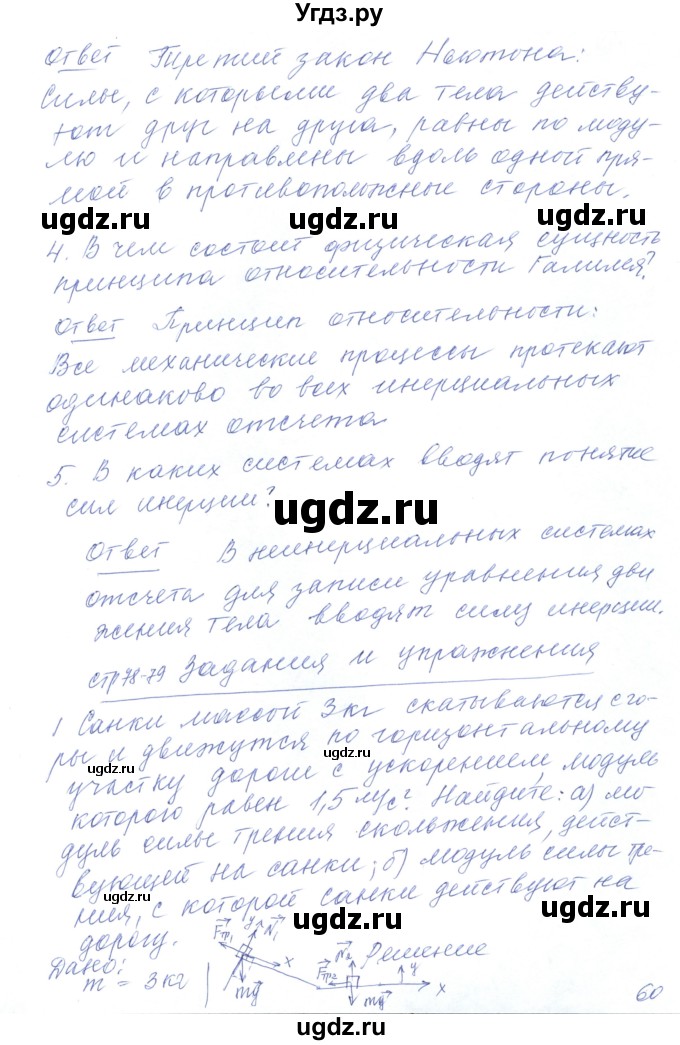 Угдз.ру
Ответ Третий закон Ньютона:
Силы, с которыми два тела действу-
ют друг на друга, равны по моду-
лю и направлены вдоль одной пря-
мой в противоположные стороны.
ugdz.ru ugdz.ru ugdz.ru
4. В чем состоит физическая сущность
принципа относительности Галилея?
Ответ Принцип относительности:
Все механические процессы протекают
одинаково во всех инерциальных
системах отсчета
5. В каких системах вводят понятие
сил инерции?
ugdz.ru
Ответ В неинерциальных системах
отсчета для записи уравнения дви
жения тела вводят силу инерции.
стр 78-79 Задания и упражнения
1 Санки массой 3 кг скатываются с го-
ры и движутся по горизонтальному
ugdz.ru ugdz.ru ugdz.ru
участку дороги с ускорением, модуль
которого равен 1,5 м/с². Найдите: а) мо
дуль силы трения скольжения, дейст-
вующей на санки; б) модуль силы тре-
ния, с которой санки действуют на
ugdz.ru ugdz.ru
дорогу.
Дано: Решение
m = 3 кг
Fтр1 y N1 x mg
Fтр2 N2 y x mg
60
ugdz.ru